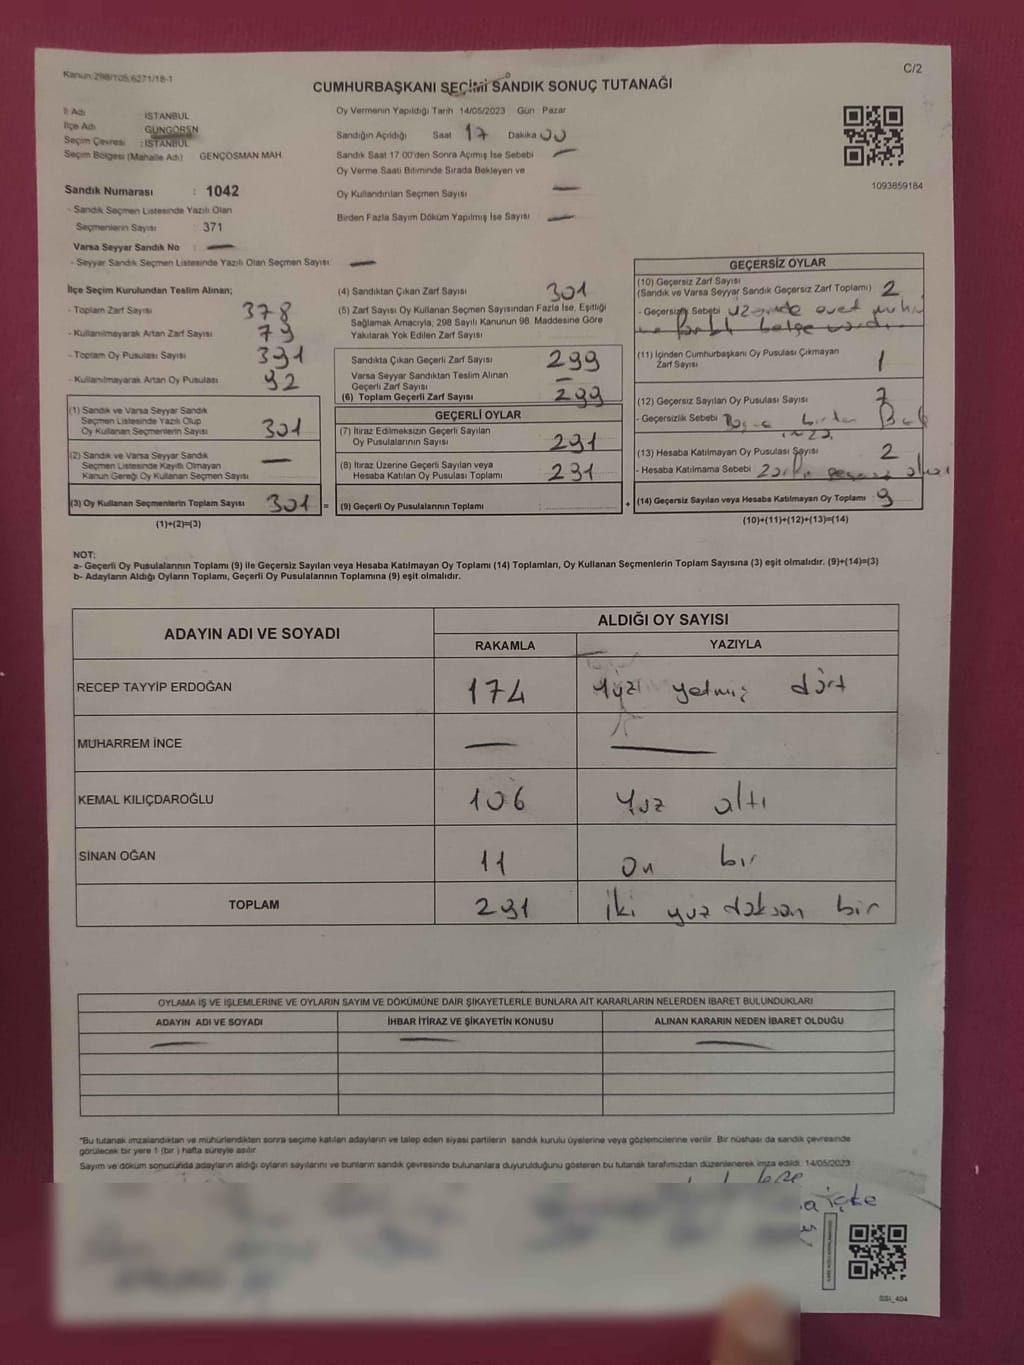 Kanun:298/105;6271/18-1
C/2
CUMHURBAŞKANI SEÇİMİ SANDIK SONUÇ TUTANAĞI
İl Adı İSTANBUL
İlçe Adı GÜNGÖREN
Seçim Çevresi : İSTANBUL
Seçim Bölgesi (Mahalle Adı) GENÇOSMAN MAH
Sandık Numarası : 1042
- Sandık Seçmen Listesinde Yazılı Olan
Seçmenlerin Sayısı : 371
Varsa Seyyar Sandık No : —
- Seyyar Sandık Seçmen Listesinde Yazılı Olan Seçmen Sayısı: —
Oy Vermenin Yapıldığı Tarih 14/05/2023 Gün : Pazar
Sandığın Açıldığı Saat 17 Dakika 00
Sandık Saat 17:00'den Sonra Açmış İse Sebebi —
Oy Verme Saati Bitiminde Sırada Bekleyen ve
Oy Kullandırılan Seçmen Sayısı —
Birden Fazla Sayım Döküm Yapılmış İse Sayısı —
1093859184
İlçe Seçim Kurulundan Teslim Alınan;
- Toplam Zarf Sayısı 378
- Kullanılmayarak Artan Zarf Sayısı 79
- Toplam Oy Pusulası Sayısı 391
- Kullanılmayarak Artan Oy Pusulası 92
(1) Sandık ve Varsa Seyyar Sandık
Seçmen Listesinde Yazılı Olup
Oy Kullanan Seçmenlerin Sayısı 301
(2) Sandık ve Varsa Seyyar Sandık
Seçmen Listesinde Kayıtlı Olmayan
Kanun Gereği Oy Kullanan Seçmen Sayısı —
(3) Oy Kullanan Seçmenlerin Toplam Sayısı 301 =
(1)+(2)=(3)
(4) Sandıktan Çıkan Zarf Sayısı 301
(5) Zarf Sayısı Oy Kullanan Seçmen Sayısından Fazla İse, Eşitliği
Sağlamak Amacıyla; 298 Sayılı Kanunun 98. Maddesine Göre
Yakılarak Yok Edilen Zarf Sayısı
Sandıkta Çıkan Geçerli Zarf Sayısı 299
Varsa Seyyar Sandıktan Teslim Alınan
Geçerli Zarf Sayısı —
(6) Toplam Geçerli Zarf Sayısı 299
GEÇERLİ OYLAR
(7) İtiraz Edilmeksizin Geçerli Sayılan
Oy Pusulalarının Sayısı 291
(8) İtiraz Üzerine Geçerli Sayılan veya
Hesaba Katılan Oy Pusulası Toplamı 291
(9) Geçerli Oy Pusulalarının Toplamı +
GEÇERSİZ OYLAR
(10) Geçersiz Zarf Sayısı
(Sandık ve Varsa Seyyar Sandık Geçersiz Zarf Toplamı) 2
- Geçersizlik Sebebi üzerinde evet
(11) İçinden Cumhurbaşkanı Oy Pusulası Çıkmayan
Zarf Sayısı 1
(12) Geçersiz Sayılan Oy Pusulası Sayısı 7
- Geçersizlik Sebebi
(13) Hesaba Katılmayan Oy Pusulası Sayısı 2
- Hesaba Katılmama Sebebi
(14) Geçersiz Sayılan veya Hesaba Katılmayan Oy Toplamı : 9
(10)+(11)+(12)+(13)=(14)
NOT:
a- Geçerli Oy Pusulalarının Toplamı (9) ile Geçersiz Sayılan veya Hesaba Katılmayan Oy Toplamı (14) Toplamları, Oy Kullanan Seçmenlerin Toplam Sayısına (3) eşit olmalıdır. (9)+(14)=(3)
b- Adayların Aldığı Oyların Toplamı, Geçerli Oy Pusulalarının Toplamına (9) eşit olmalıdır.
ADAYIN ADI VE SOYADI ALDIĞI OY SAYISI
RAKAMLA YAZIYLA
RECEP TAYYİP ERDOĞAN 174 yüz yetmiş dört
MUHARREM İNCE — —
KEMAL KILIÇDAROĞLU 106 Yuz altı
SİNAN OĞAN 11 on bir
TOPLAM 291 iki yuz doksan bir
OYLAMA İŞ VE İŞLEMLERİNE VE OYLARIN SAYIM VE DÖKÜMÜNE DAİR ŞİKAYETLERLE BUNLARA AİT KARARLARIN NELERDEN İBARET BULUNDUKLARI
ADAYIN ADI VE SOYADI İHBAR İTİRAZ VE ŞİKAYETİN KONUSU ALINAN KARARIN NEDEN İBARET OLDUĞU
— — —
"Bu tutanak imzalandıktan ve mühürlendikten sonra seçime katılan adayların ve talep eden siyasi partilerin sandık kurulu üyelerine veya gözlemcilerine verilir. Bir nüshası da sandık çevresinde
görülecek bir yere 1 (bir ) hafta süreyle asılır.
Sayım ve döküm sonucunda adayların aldığı oyların sayılarını ve bunların sandık çevresinde bulunanlara duyurulduğunu gösteren bu tutanak tarafımızdan düzenlenerek imza edildi. 14/05/2023
SSI_404